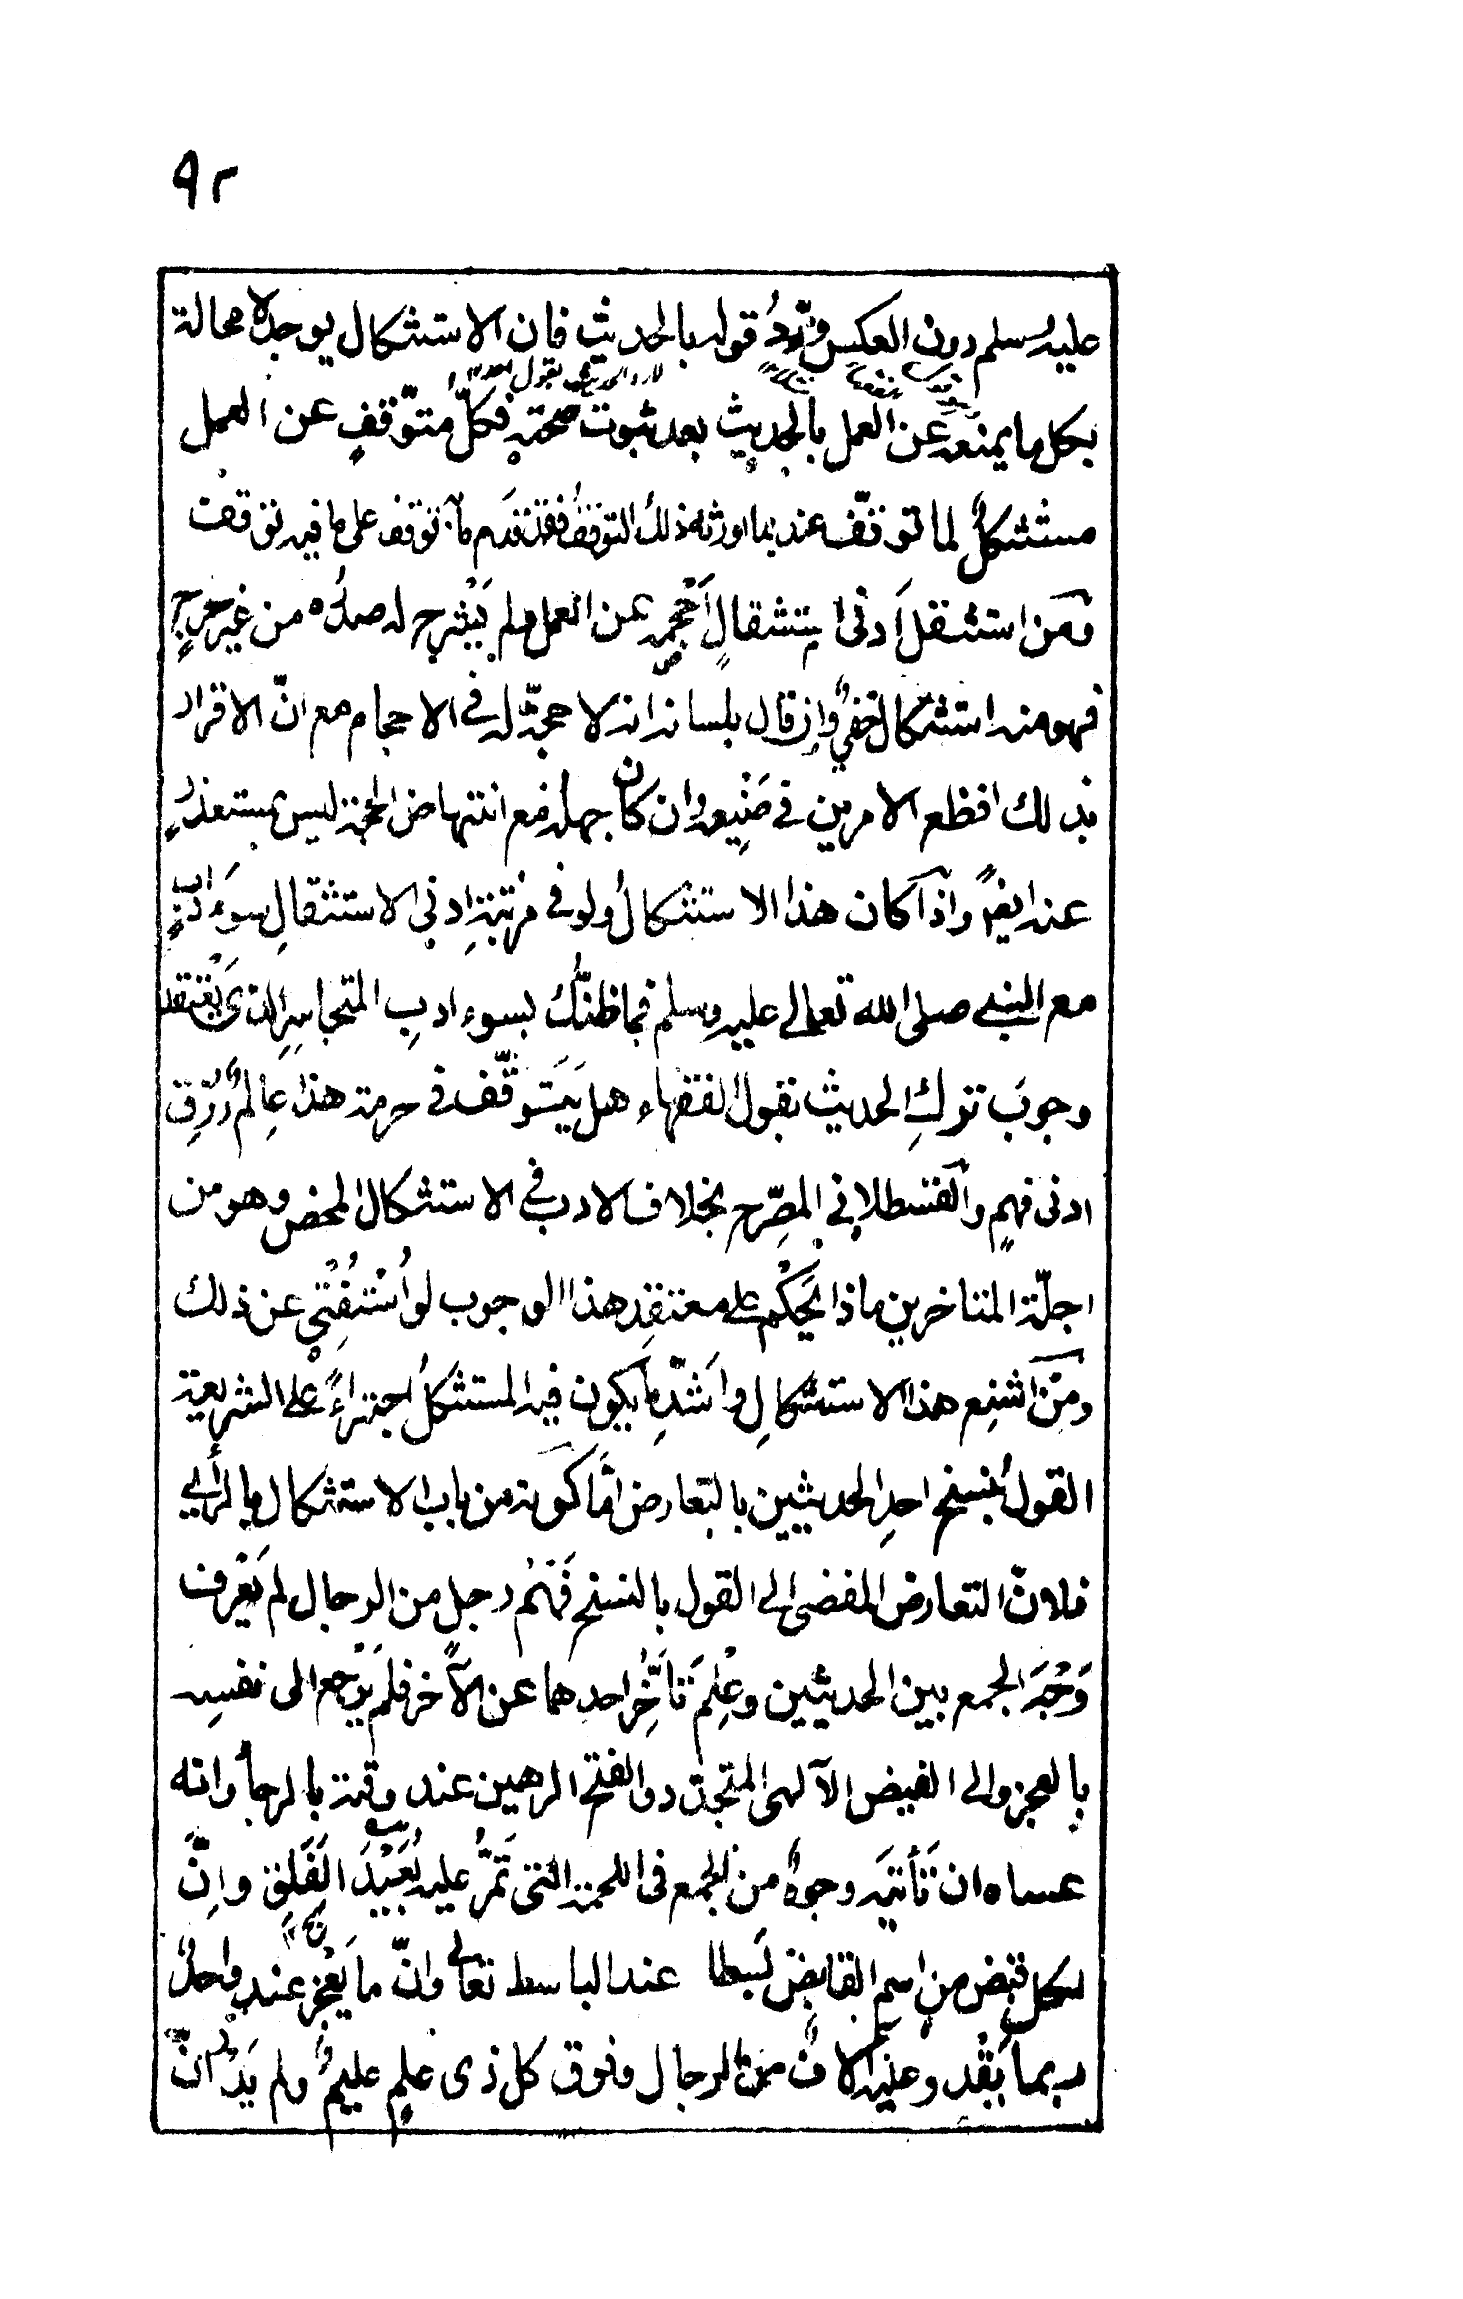 ٩٢
عليه وسلم دون العكس وتردّ قوله بالحديث فان الاستشكال يوجد لا محالة
لا رد الحديث بقول احد
بكل ما يمنعه عن العمل بالحديث بعد ثبوت صحته فكلّ متوّقفٍ عن العمل
مستشكلٌ لما توقّف عنه بما اورثه ذلك التوقف فقد تقدم ما توقف على ما فيه توقفت
ومَن استثقل اَدنى استثقالٍ اَحجمه عن العمل ولم يَنْشرح له صدرُه من غير حرجٍ
فهو منه استشكال خفيٌّ وان قال بلسانه انه لا حجةَ له في الاحجام مع انّ الاقرار
بذلك افظع الامرين في صَنِيعه وان كان جهله مع انتهاض الحجة ليس بمستعذرٍ
عنه ايضًا واذا كان هذا الاستشكالُ ولو في مرتبةِ ادنى الاستثقالِ سوءَ ادبٍ
مع النبي صلى الله تعالى عليه وسلم فما ظنُّك بسوء ادبِ المتجاسِرِ الذي يَعْتقد
وجوبَ تركِ الحديث بقول الفقهاء هل يَتَوقَّف في حرمة هذا عالِمٌ رُزِق
ادنى فهمٍ والقسطلاني المصرِّح بخلاف الادب في الاستشكال المحض وهو من
اجلّة المتاخرين ماذا يَحْكُم على معتقِد هذا الوجوب لو اُسْتُفْتِي عن ذلك
ومن اشنع هذا الاستشكالِ واَشدِّ ما يكون فيه المستشكلُ اجتراءً على الشريعة
القولُ بنسخ احدِ الحديثين بالتعارض امّا كونه من باب الاستشكال بالرأي
فلانّ التعارض المفضى الى القول بالنسخ فَهْمُ رجل من الرجال لم يَعْرف
وَجْهَ الجمع بين الحديثين وعُلِمَ تأخّرُ احدهما عن الآخر فلم يَرْجع الى نفسِه
بالعجز والى الفيض الآلهى المتجدّد والفتح الرهين عند وقته بالرجاْ وانه
عساه ان تَأتيَه وجوهٌ من الجمع في اللمحة التى تَمُرُّ عليه بُعَيْدَ الفَلَق وانَّ
لكل قبض من اسم القابض بَسطا عند الباسط تعالى وانّ ما يَعْجز عنه واحدٌ
ربما يَقْدر عليه الآفٌ من الرجال وفوق كل ذى علمٍ عليمٌ ولم يَدْرِ انّ